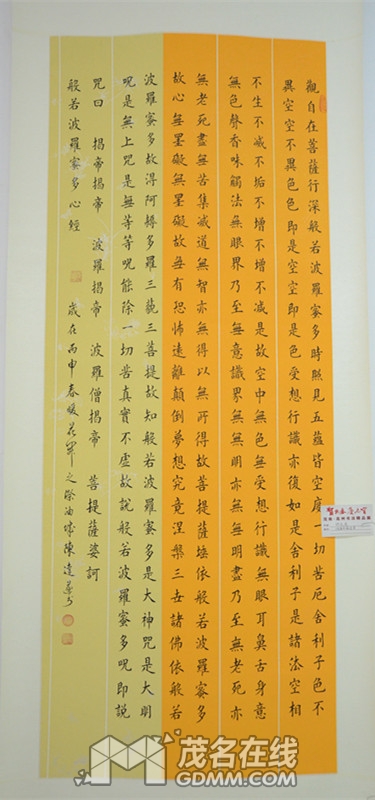 觀自在菩薩行深般若波羅蜜多時照見五蘊皆空度一切苦厄舍利子色不
異空空不異色色即是空空即是色受想行識亦復如是舍利子是諸法空相
不生不滅不垢不增不增不減是故空中無色無受想行識無眼耳鼻舌身意
無色聲香味觸法無眼界乃至無意識界無無明亦無無明盡乃至無老死亦
無老死盡無苦集滅道無智亦無得以無所得故菩提薩埵依般若波羅蜜多
故心無罣礙無罣礙故無有恐怖遠離顛倒夢想究竟涅槃三世諸佛依般若
波羅蜜多故得阿耨多羅三藐三菩提故知般若波羅蜜多是大神咒是大明
呪是無上咒是無等等呪能除一切苦真實不虛故說般若波羅蜜多呪即說
咒曰 揭帝揭帝 波羅揭帝 波羅僧揭帝 菩提薩婆訶
般若波羅蜜多心經 歲在丙申春暖花開之際油城陳達
茂名在线
GDMM.COM